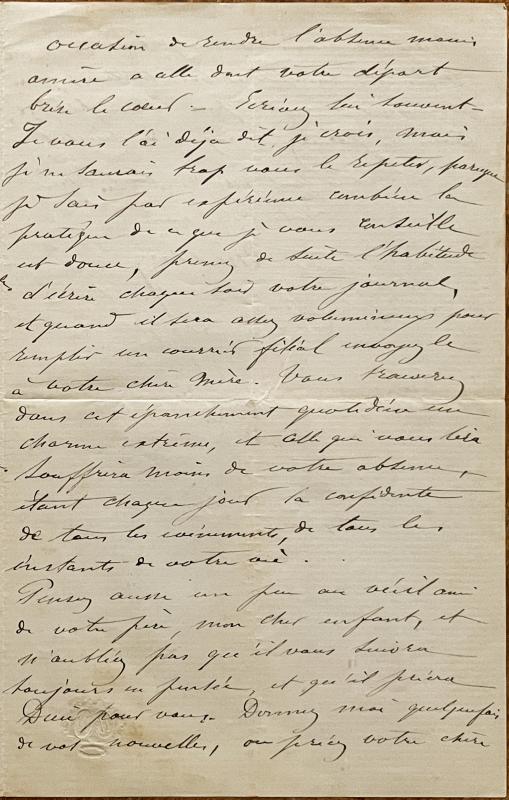 occasion de rendre l'absence moins
amère a celle dont votre départ
brise le cœur – Ecrivez lui souvent –
Je vous l'ai déja dit, je crois, mais
je ne saurais trop vous le répéter, parceque
je sais par expérience combien la
pratique de ce que je vous conseille
est douce, prenez de suite l'habitude
d'écrire chaque soir votre journal,
et quand il sera assez volumineux pour
remplir un courrier filial envoyez le
à votre chère Mère. Vous trouverez
dans cet épanchement quotidien un
charme extrême, et celle qui vous lira
souffrira moins de votre absence,
étant chaque jour la confidente
de tous les événements, de tous les
instants de votre vie .
Pensez aussi un peu au vieil ami
de votre père, mon cher enfant, et
n'oubliez pas qu'il vous suivra
toujours en pensée, et qu'il priera
Dieu pour vous. Donnez moi quelquefois
de vos nouvelles, ou priez votre chère